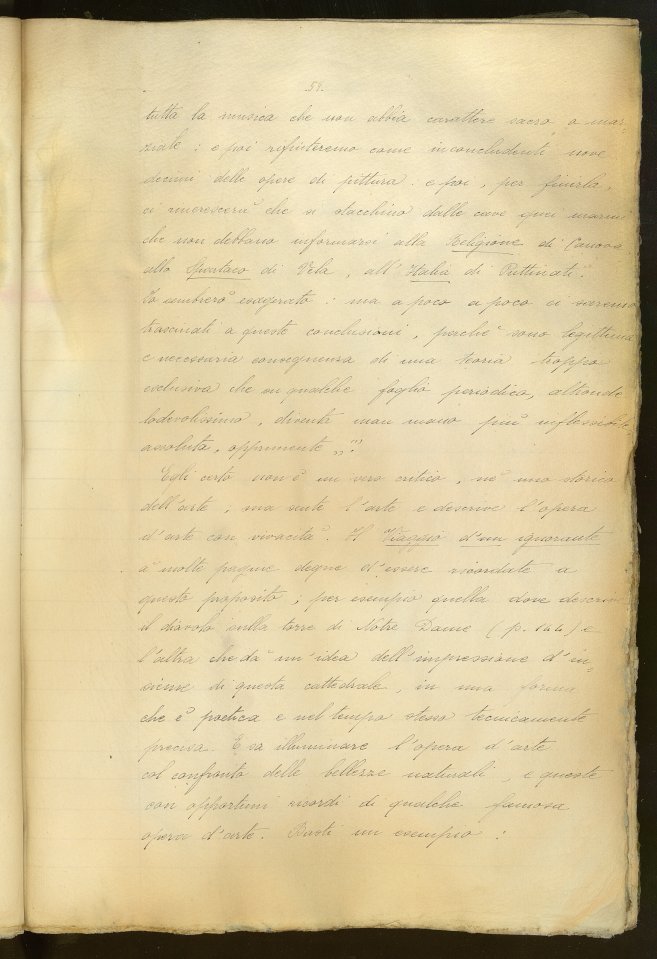 tutta la musica che non abbia carattere sacro o mar-
ziale: e poi rifiuteremo come inconcludenti nove
decimi delle opere di pittura: e poi, per finirla,
ci increscerà che si stacchino dalle cave quei marmi
che non debbano informarsi alla Religione di Canova
allo Spartaco di Vela, all'Italia di Puttinati.
Io sembrerò esagerato: ma a poco a poco ci saremo
trascinati a queste conclusioni, perchè sono legittima
e necessaria conseguenza di una teoria troppo
esclusiva che in qualche foglio periodico, altronde
lodevolissimo, diventa man mano più inflessibile
assoluta, opprimente „
Egli certo non è un vero critico, nè uno storico
dell'arte, ma sente l'arte e descrive l'opera
d'arte con vivacità. Il Viaggio d'un ignorante
à molte pagine degne d'essere ricordate a
questo proposito; per esempio quella dove descrive
il diavolo sulla torre di Nôtre Dame (p. 144) e
l'altra che dà un'idea dell'impressione d'in-
sieme di questa cattedrale, in una forma
che è poetica e nel tempo stesso tecnicamente
precisa. E sa illuminare l'opera d'arte
col confronto delle bellezze naturali, e queste
con opportuni ricordi di qualche famosa
opera d'arte. Basti un esempio: